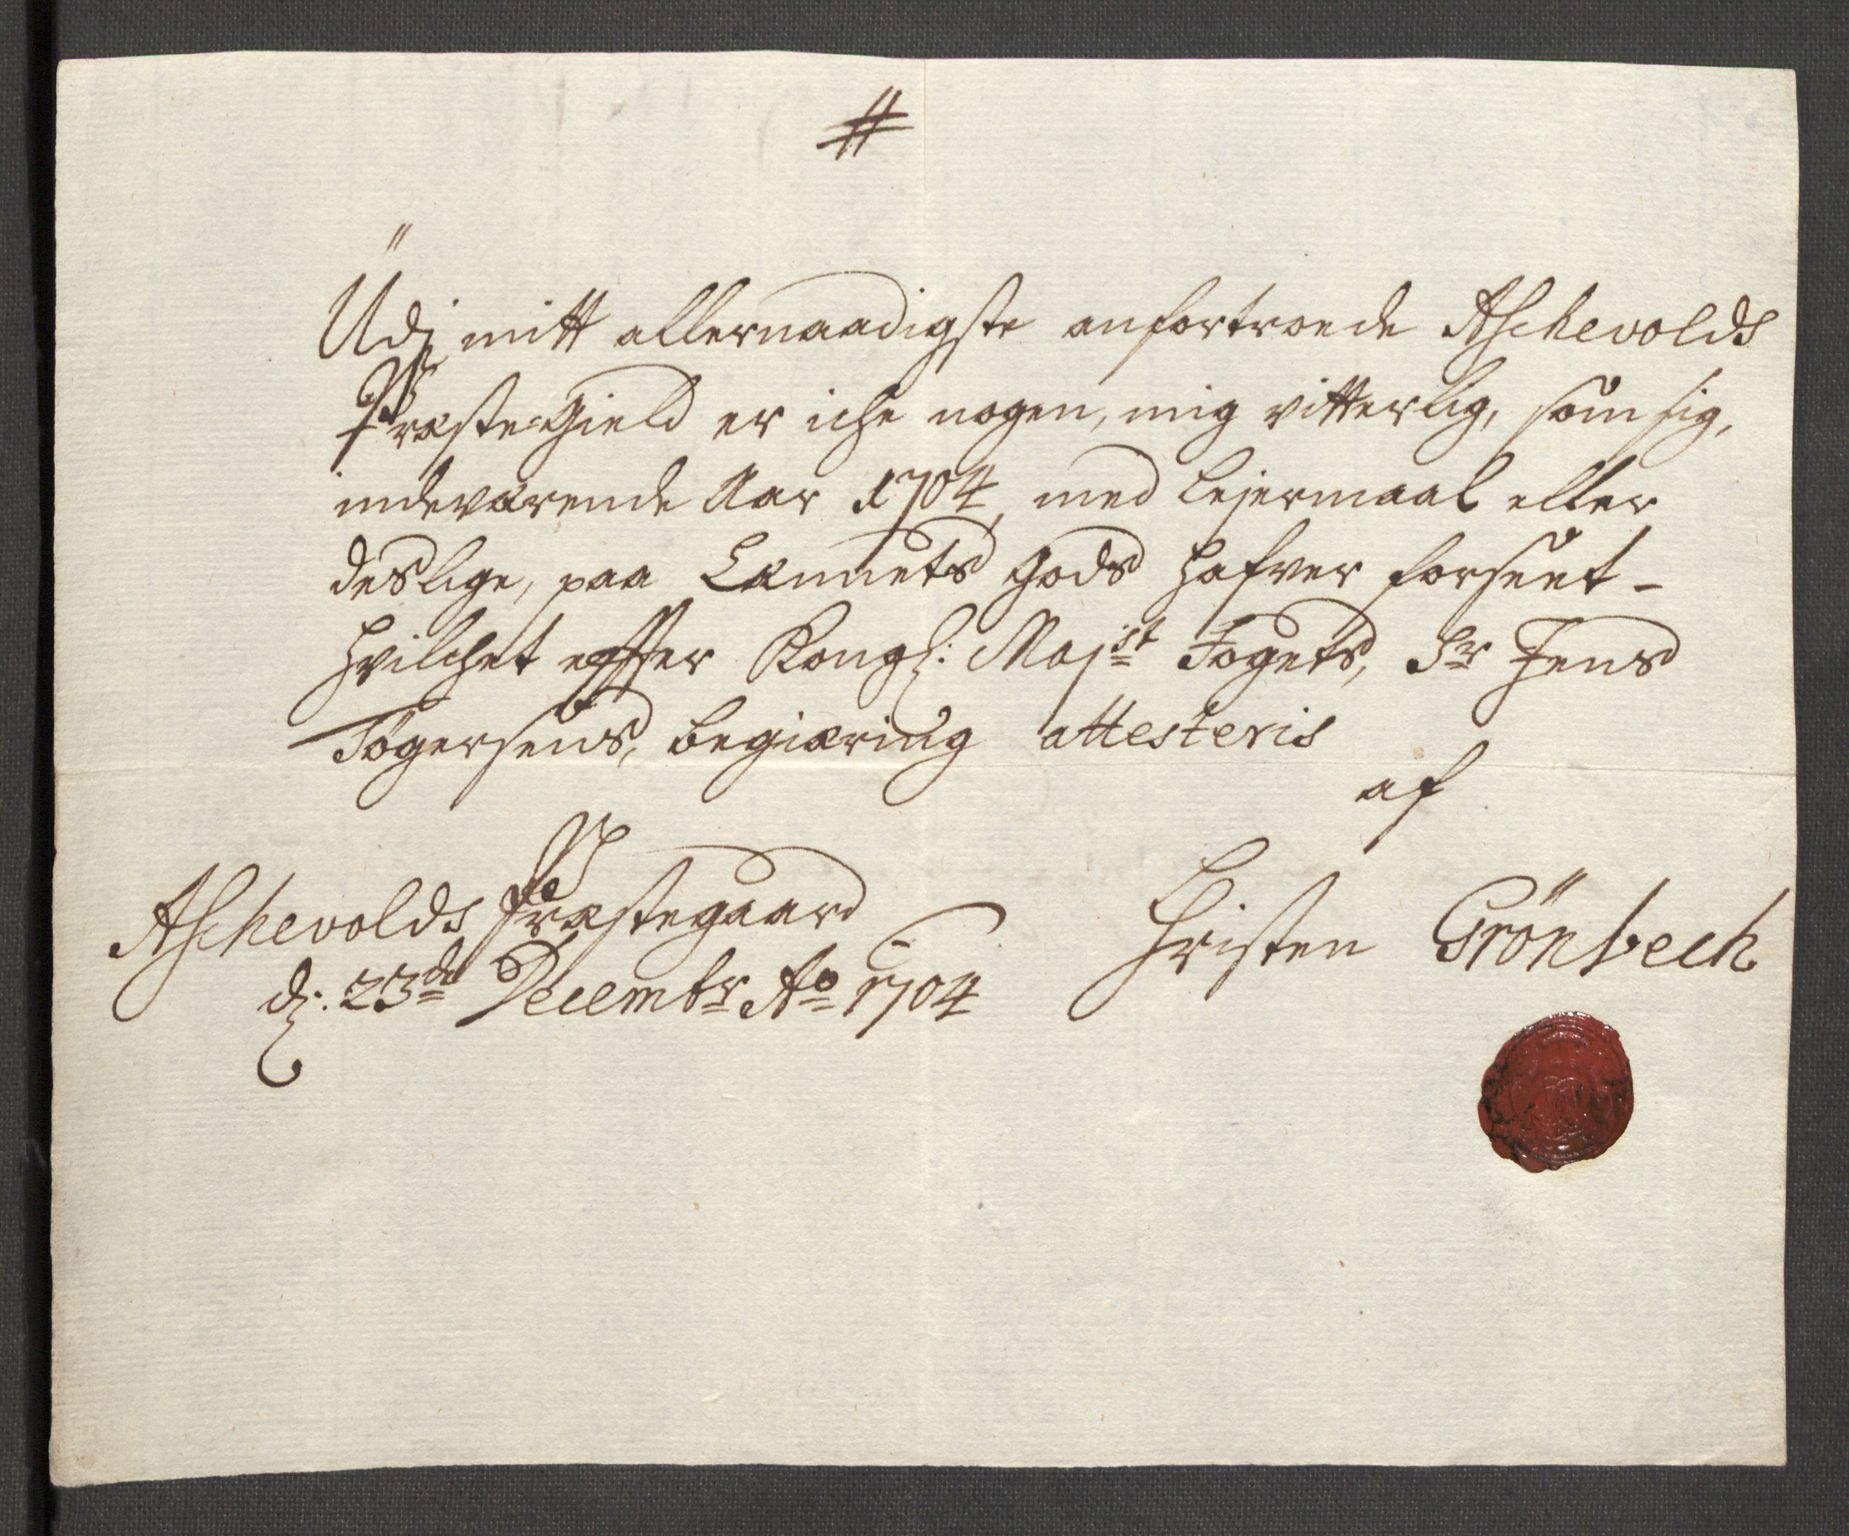 #
Udj mitt allernaadigste anfortroede Aschevolds
PræsteGield er iche nogen, mig vitterlig, som sig,
indeværende Aar 1704, med Lejermaal eller
deslige, paa Lænnets gods hafver forseet -
Hvilchet effter Kongl: Majst Fogets, Sr Jens
Tøgersens, begiæring attesteris
af
Aschevolds Præstegaard
d: 23de Decembr Ao 1704
Christen Grönbech